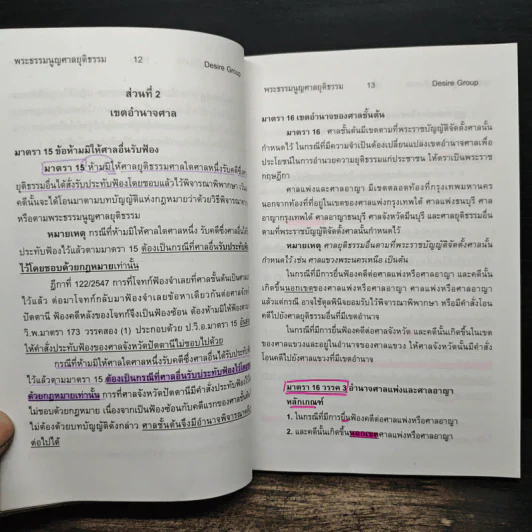 พระธรรมนูญศาลยุติธรรม 12 Desire Group
ส่วนที่ 2
เขตอำนาจศาล
มาตรา 15 ข้อห้ามมิให้ศาลอื่นรับฟ้อง
มาตรา 15 ห้ามมิให้ศาลยุติธรรมศาลใดศาลหนึ่งรับคดีซึ่ง
ยุติธรรมอื่นได้สั่งรับประทับฟ้องโดยชอบแล้วไว้พิจารณาพิพากษา เว้น
คดีนั้นจะได้โอนมาตามบทบัญญัติแห่งกฎหมายว่าด้วยวิธีพิจารณาความ
หรือตามพระธรรมนูญศาลยุติธรรม
หมายเหตุ กรณีที่ห้ามมิให้ศาลใดศาลหนึ่ง รับคดีซึ่งศาลอื่นได้
ประทับฟ้องไว้แล้วตามมาตรา 15 ต้องเป็นกรณีที่ศาลอื่นรับประทับฟ้อง
ไว้โดยชอบด้วยกฎหมายเท่านั้น
ฎีกาที่ 122/2547 การที่โจทก์ฟ้องจำเลยที่ศาลชั้นต้นเป็นศาล
ไว้แล้ว ต่อมาโจทก์กลับมาฟ้องจำเลยข้อหาเดียวกันต่อศาลจังหวัด
ปัตตานี ฟ้องคดีหลังของโจทก์จึงเป็นฟ้องซ้อน ต้องห้ามมิให้ฟ้องตาม
วิ.พ.มาตรา 173 วรรคสอง (1) ประกอบด้วย ป.วิ.อ.มาตรา 15
ให้คำสั่งประทับฟ้องของศาลจังหวัดปัตตานีไม่ชอบไปด้วย
กรณีที่ห้ามมิให้ศาลใดศาลหนึ่งรับคดีซึ่งศาลอื่นได้รับประทับ
ไว้แล้วตามมาตรา 15 ต้องเป็นกรณีที่ศาลอื่นรับประทับฟ้องไว้โดยชอบ
ด้วยกฎหมายเท่านั้น การที่ศาลจังหวัดปัตตานีมีคำสั่งประทับฟ้อง
ไม่ชอบด้วยกฎหมาย เนื่องจากเป็นฟ้องซ้อนกับคดีแรกของศาลชั้นต้น
ไม่ต้องด้วยบทบัญญัติดังกล่าว ศาลชั้นต้นจึงมีอำนาจพิจารณาคดี
ต่อไปได้
พระธรรมนูญศาลยุติธรรม 13 Desire Group
มาตรา 16 เขตอำนาจของศาลชั้นต้น
มาตรา 16 ศาลชั้นต้นมีเขตตามที่พระราชบัญญัติจัดตั้งศาลนั้น
กำหนดไว้ ในกรณีที่มีความจำเป็นต้องเปลี่ยนแปลงเขตอำนาจศาลเพื่อ
ประโยชน์ในการอำนวยความยุติธรรมแก่ประชาชน ให้ตราเป็นพระราช
กฤษฎีกา
ศาลแพ่งและศาลอาญา มีเขตตลอดท้องที่กรุงเทพมหานคร
นอกจากท้องที่ที่อยู่ในเขตของศาลแพ่งกรุงเทพใต้ ศาลแพ่งธนบุรี ศาล
อาญากรุงเทพใต้ ศาลอาญาธนบุรี ศาลจังหวัดมีนบุรี และศาลยุติธรรมอื่น
ตามที่พระราชบัญญัติจัดตั้งศาลนั้นกำหนดไว้
หมายเหตุ ศาลยุติธรรมอื่นตามที่พระราชบัญญัติจัดตั้งศาลนั้น
กำหนดไว้ เช่น ศาลแขวงพระนครเหนือ เป็นต้น
ในกรณีที่มีการยื่นฟ้องคดีต่อศาลแพ่งหรือศาลอาญา และคดีนั้น
เกิดขึ้นนอกเขตของศาลแพ่งหรือศาลอาญา ศาลแพ่งหรือศาลอาญา
แล้วแต่กรณี อาจใช้ดุลพินิจยอมรับไว้พิจารณาพิพากษา หรือมีคำสั่งโอน
คดีไปยังศาลยุติธรรมอื่นที่มีเขตอำนาจ
ในกรณีที่มีการยื่นฟ้องคดีต่อศาลจังหวัด และคดีนั้นเกิดขึ้นในเขต
ของศาลแขวงและอยู่ในอำนาจของศาลแขวง ให้ศาลจังหวัดนั้นมีคำสั่ง
โอนคดีไปยังศาลแขวงที่มีเขตอำนาจ
มาตรา 16 วรรค 3 อำนาจศาลแพ่งและศาลอาญา
หลักเกณฑ์
1. ในกรณีที่มีการยื่นฟ้องคดีต่อศาลแพ่งหรือศาลอาญา
2. และคดีนั้นเกิดขึ้นนอกเขตศาลแพ่งหรือศาลอาญา